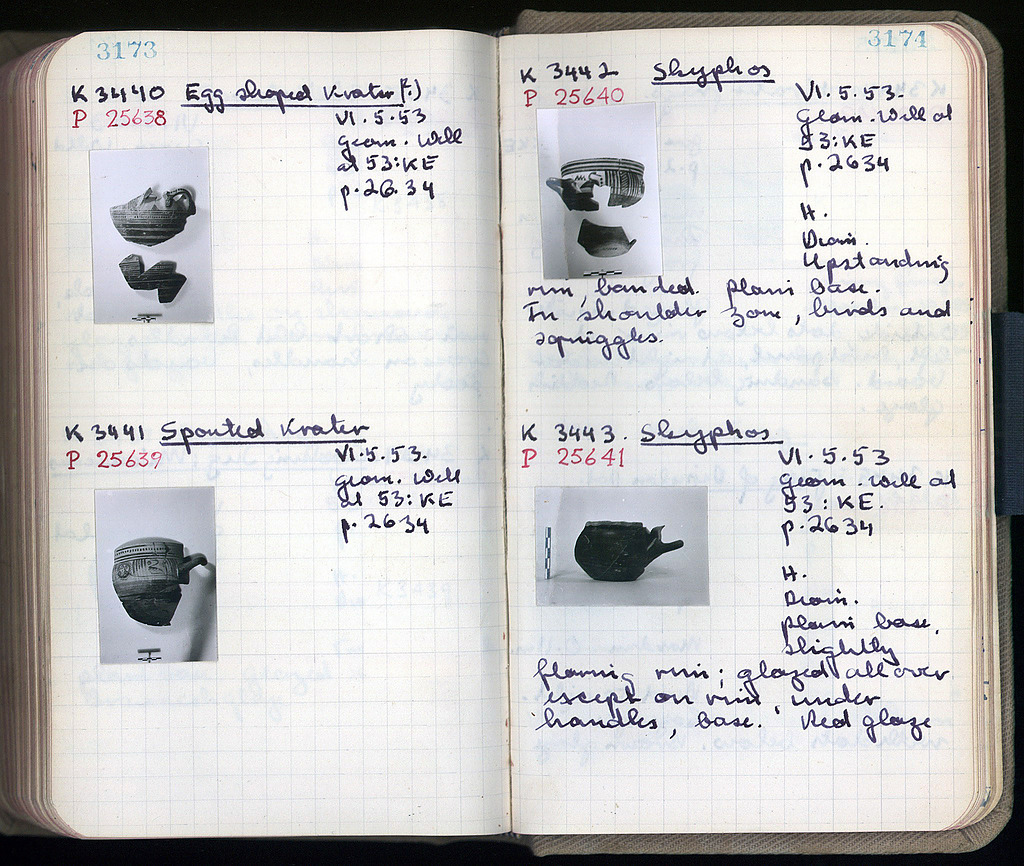 3173
K 3440 Egg shaped Krater (?)
P 25638
VI.5.53
Geom. Well
at 53:KE
p.2634
K 3441 Spouted Krater
P 25639
VI.5.53.
Geom. Well
at 53:KE
p.2634
3174
K 3442 Skyphos
P 25640
VI.5.53.
Geom. Well at
53:KE
p.2634
H.
Diam.
Upstanding
rim, banded. Plain base.
In shoulder zone, birds and
squiggles.
K 3443. Skyphos
P 25641
VI.5.53
Geom. Well at
53:KE.
p.2634
H.
Diam.
Plain base,
slightly
flaring rim; glazed all over
except on rim, under
handles, base. Red glaze